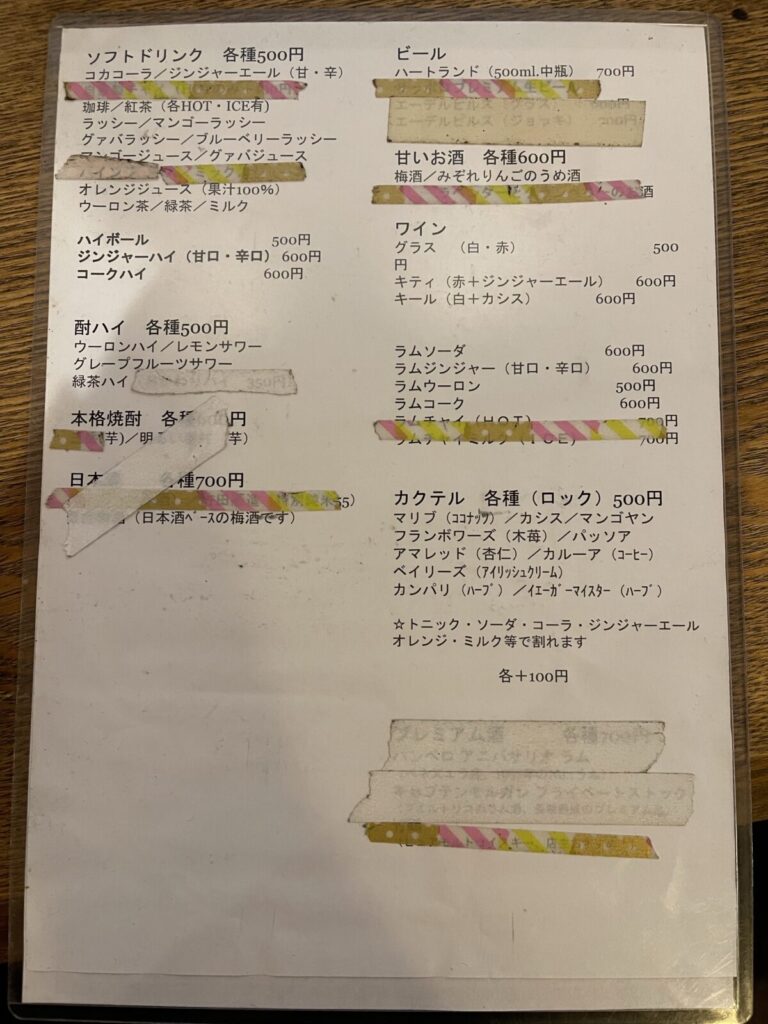 ソフトドリンク　各種500円
コカコーラ／ジンジャーエール（甘・辛）
珈琲／紅茶（各HOT・ICE有）
ラッシー／マンゴーラッシー
グァバラッシー／ブルーベリーラッシー
マンゴージュース／グァバジュース
オレンジジュース（果汁100%）
ウーロン茶／緑茶／ミルク
ハイボール　500円
ジンジャーハイ（甘口・辛口）　600円
コークハイ　600円
酎ハイ　各種500円
ウーロンハイ／レモンサワー
グレープフルーツサワー
緑茶ハイ　350円
本格焼酎　各種　円
芋)／明　芋）
日本　各種700円
55）
（日本酒ﾍﾞｰｽの梅酒です）
ビール
ハートランド（500ml.中瓶）　700円
エーデルピルス（グラス）　600円
エーデルピルス（ジョッキ）
甘いお酒　各種600円
梅酒／みぞれりんごのうめ酒
のお酒
ワイン
グラス　（白・赤）　500
円
キティ（赤＋ジンジャーエール）　600円
キール（白＋カシス）　600円
ラムソーダ　600円
ラムジンジャー（甘口・辛口）　600円
ラムウーロン　500円
ラムコーク　600円
ラムチャイ（HOT）　700円
ラムチャイミルク（ICE）　700円
カクテル　各種（ロック）500円
マリブ（ｺｺﾅｯﾂ）／カシス／マンゴヤン
フランボワーズ（木苺）／パッソア
アマレッド（杏仁）／カルーア（ｺｰﾋｰ）
ベイリーズ（ｱｲﾘｯｼｭｸﾘｰﾑ）
カンパリ（ﾊｰﾌﾞ）／ｲｴｰｶﾞｰﾏｲｽﾀｰ（ﾊｰﾌﾞ）
☆トニック・ソーダ・コーラ・ジンジャーエール
オレンジ・ミルク等で割れます
各＋100円
プレミアム酒　各種700円
パンペロ アニバサリオ ラム
キャプテンモルガン プライベートストック